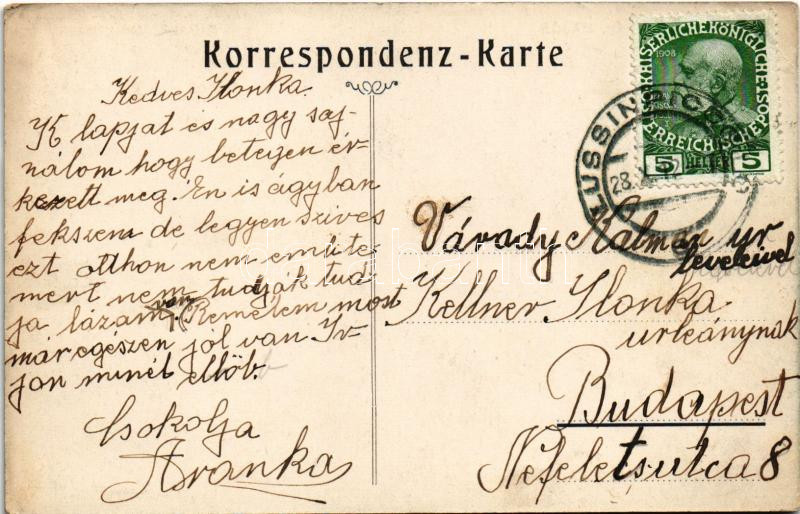 Korrespondenz-Karte
Kedves Ilonka.
K lapját és nagy saj-
nálom hogy betegen ér-
kezett meg. Én is ágyban
fekszem de legyen szives
ezt otthon nem emlite-
mert nem tudják tud-
ja lázam van. Remélem most
már egeszen jól van Ir-
jon minél ellöb.
Csokolja
Aranka
KAISERLICHE KÖNIGLICHE
POST
1908
ÖSTERREICHISCHE
5 HELLER 5
LUSSINPICC
28.
Várady Kálmán ur
leveleivel
Kellner Ilonka
urleánynak
Budapest
Nefeletsutca 8